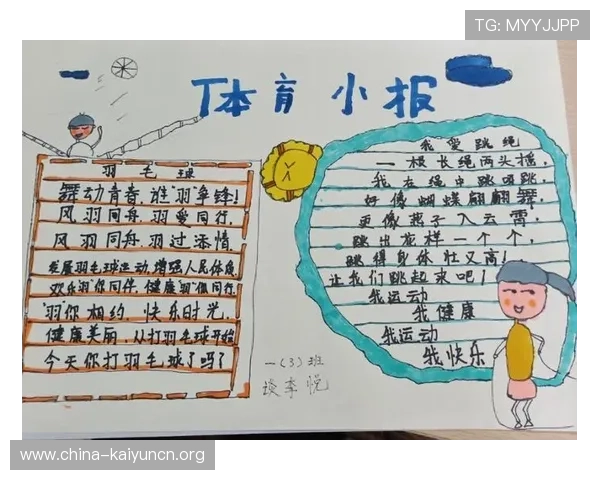 TG: MYYJJPP
体育小报
羽毛球
舞动青春,谁"羽"争锋!
风羽同舟,羽爱同行,
风羽同舟,羽过添情
发展羽毛球运动,增强人民体质
欢乐"羽"你同伴,健康"羽"俱同行,
"羽"你相约,快乐时光,
健康美丽,从打羽毛球开始
今天你打羽毛球了吗?
我爱跳绳
一根长绳两头摇,
我在绳中跳呀跳,
好像蝴蝶翩翩舞,
更像燕子入云霄,
跳出花样一个个,
跳得身体壮又高!
让我们跳起来吧!
我运动
我健康
我运动
我快乐
一(3)班
李悦
www.china-kaiyuncn.org